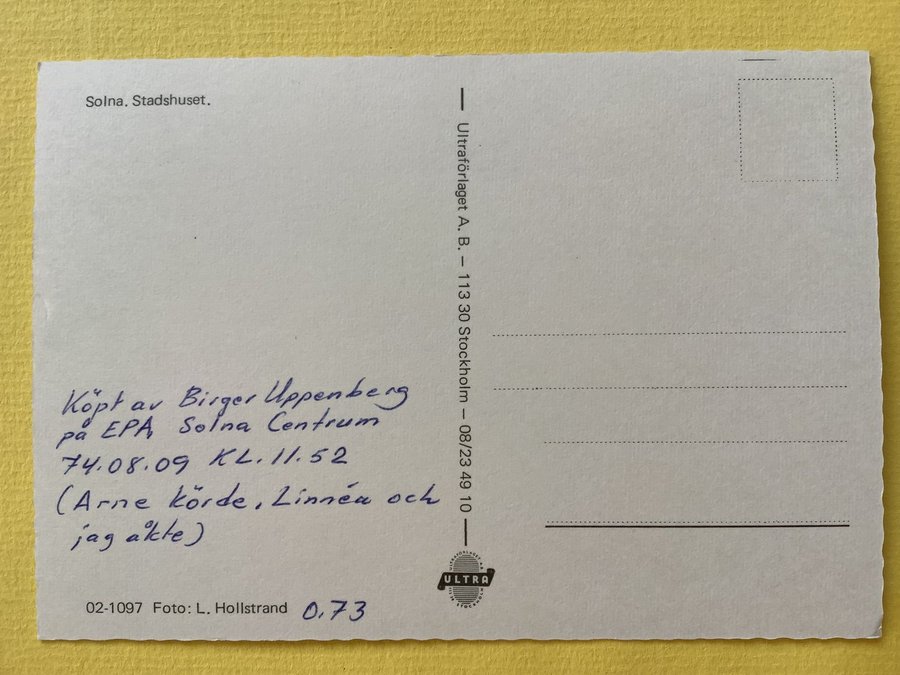 Solna. Stadshuset.
Köpt av Birger Uppenberg
på EPA, Solna Centrum
74.08.09 KL. 11.52
(Arne körde, Linnéa och
jag åkte)
02-1097 Foto: L. Hollstrand 0.73
Ultraförlaget A. B. – 113 30 Stockholm – 08/23 49 10
ULTRA